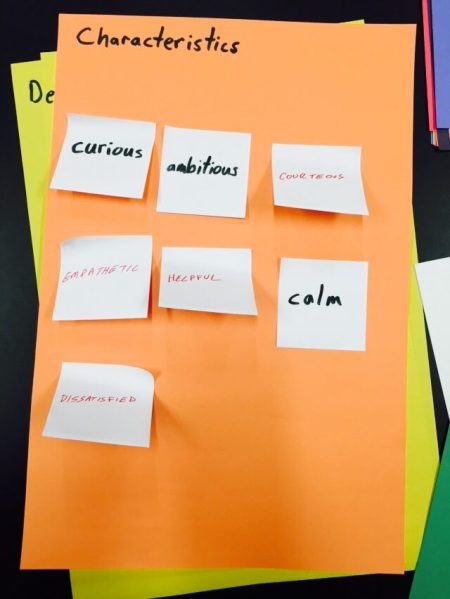 Characteristics
De
curious
ambitious
COURTEOUS
EMPATHETIC
HELPFUL
calm
DISSATISFIED